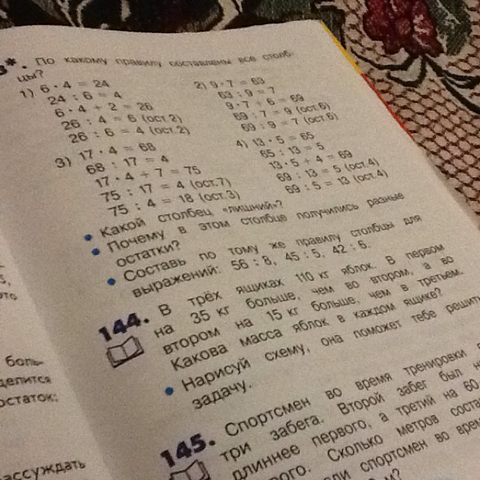 3*. По какому правилу составлены все столб-
цы?
1) 6 · 4 = 24
24 : 6 = 4
6 · 4 + 2 = 26
26 : 4 = 6 (ост.2)
26 : 6 = 4 (ост.2)
2) 9 · 7 = 63
63 : 9 = 7
9 · 7 + 6 = 69
69 : 7 = 9 (ост.6)
69 : 9 = 7 (ост.6)
3) 17 · 4 = 68
68 : 17 = 4
17 · 4 + 7 = 75
75 : 17 = 4 (ост.7)
75 : 4 = 18 (ост.3)
4) 13 · 5 = 65
65 : 13 = 5
13 · 5 + 4 = 69
69 : 13 = 5 (ост.4)
69 : 5 = 13 (ост.4)
• Какой столбец «лишний»?
• Почему в этом столбце получились разные
остатки?
• Составь по тому же правилу столбцы для
выражений: 56 : 8, 45 : 5, 42 : 6.
144. В трёх ящиках 110 кг яблок. В первом
на 35 кг больше, чем во втором, а во
втором на 15 кг больше, чем в третьем.
Какова масса яблок в каждом ящике?
• Нарисуй схему, она поможет тебе решить
задачу.
145. Спортсмен во время тренировки
три забега. Второй забег был
длиннее первого, а третий на 60
Сколько метров
спортсмен во
боль-
делится
остаток:
рассуждать